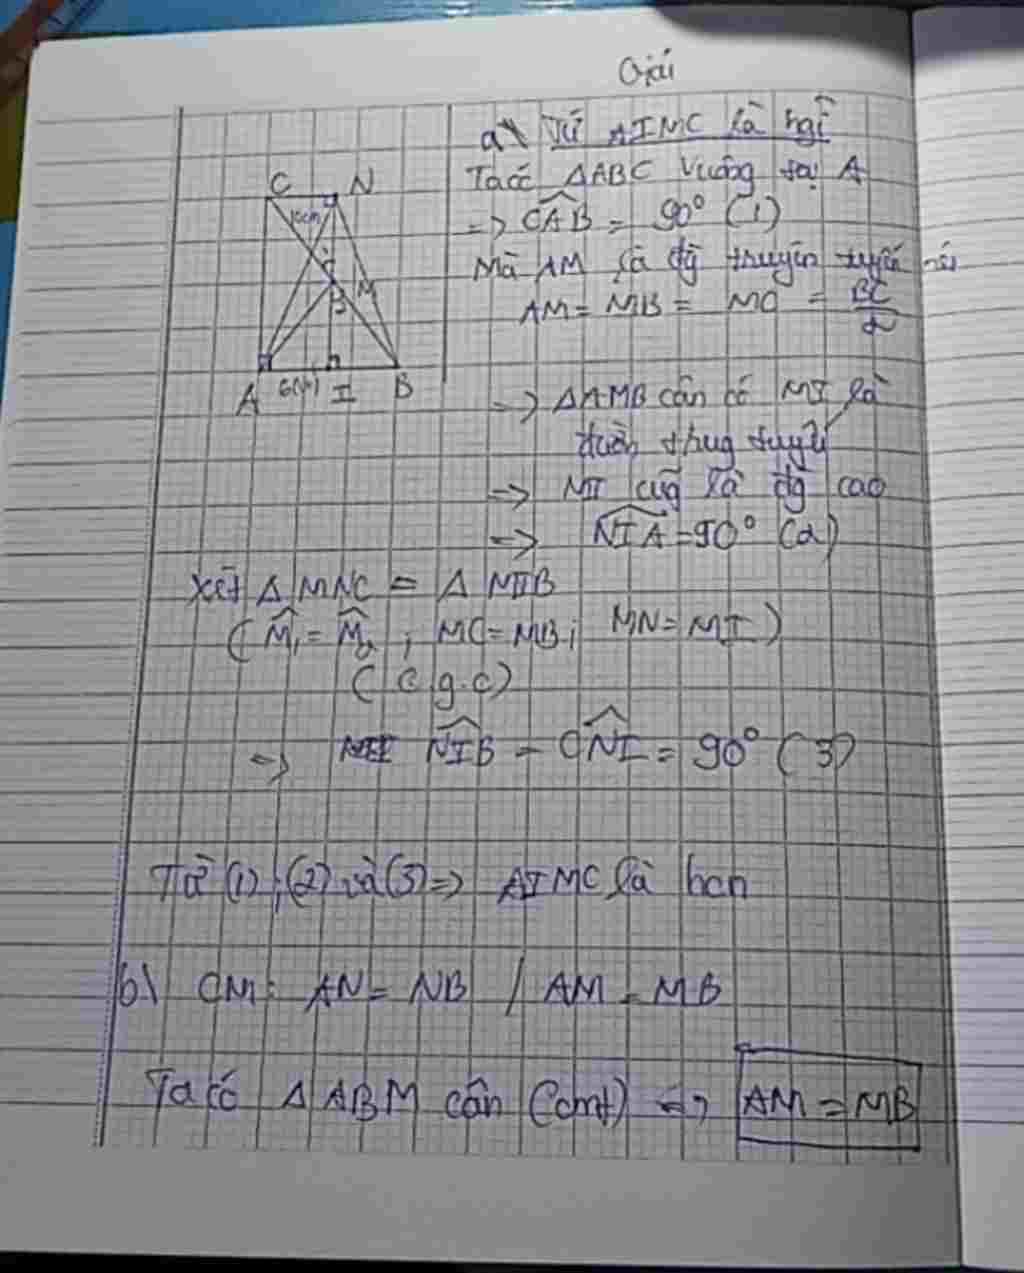 Giải
a\ Tứ AINC là hgì
Ta có ΔABC vuông tại A
=> CAB = 90° (1)
Mà AM là đg truyền tuyến
AM = MB = MC = BC/2
=> ΔAMB cân có MI là
trug tuyế
=> MI cũg là đg cao
=> NIA = 90° (2)
Xét Δ MNC = Δ MIB
(M₁ = M₂ ; MC = MB ; MN = MI)
(c.g.c)
=> NIB = CNI = 90° (3)
Từ (1) ; (2) và (3) => AINC là hcn
b\ CM: AN = NB / AM = MB
Ta có Δ ABM cân (cmt) => AM = MB
C N
10cm
M
A 6cm I B